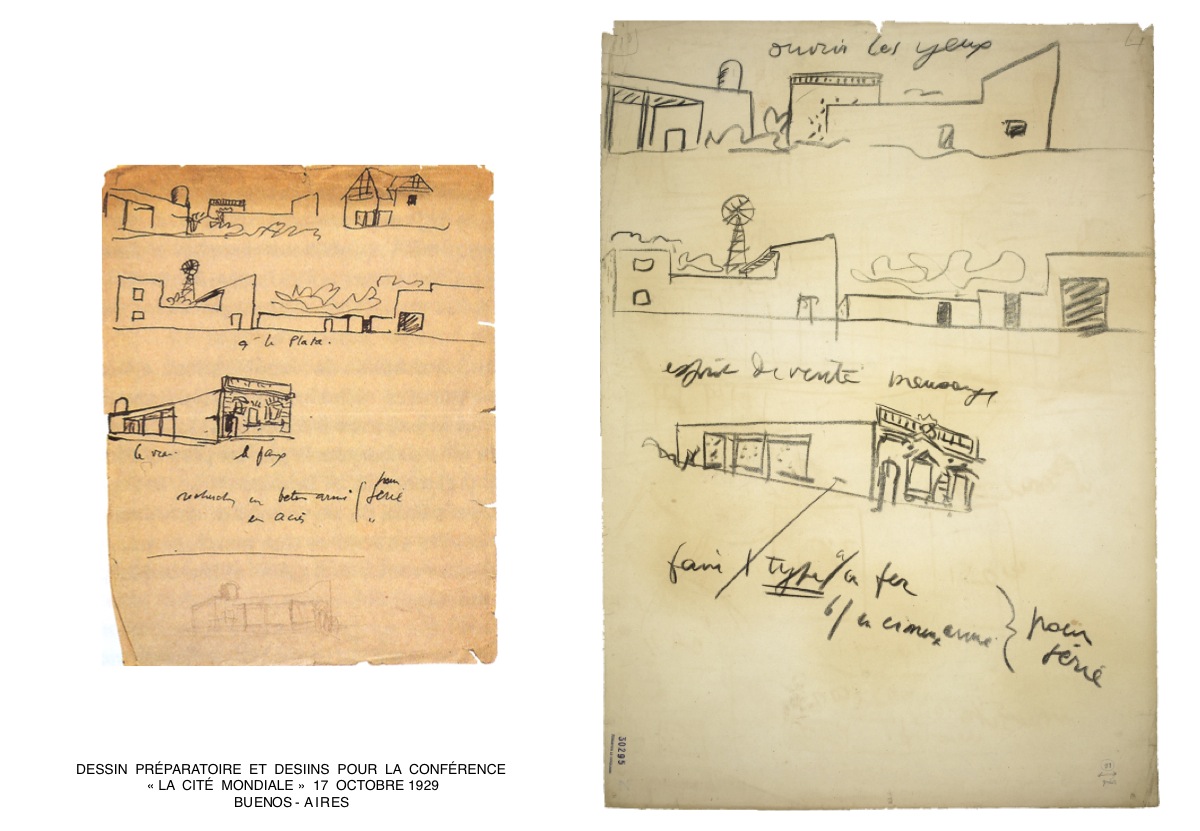 à la Plata.
le vrai le faux
recherches en beton armé pour
en acier série
"
DESSIN PRÉPARATOIRE ET DESIINS POUR LA CONFÉRENCE
« LA CITÉ MONDIALE » 17 OCTOBRE 1929
BUENOS - AIRES
ouvrir les yeux
esprit de verité mensonge
faire X type a/ en fer
b/ en ciment armé
pour
série
30295